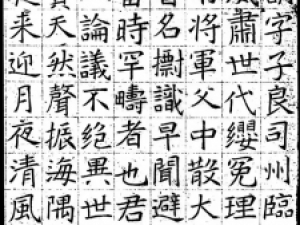 字子良司州臨
風肅世代纓冕理
将軍父中散大
名擲識早聞避
時罕疇者也君
論議不絶異世
天然聲振海隅
來迎月夜清風